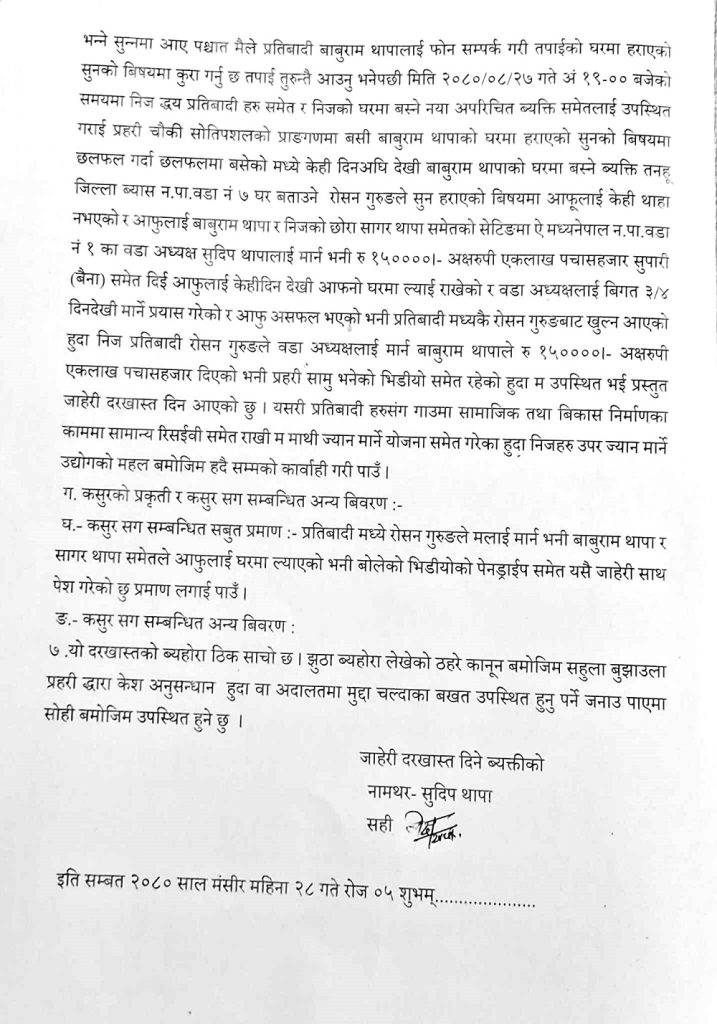 भन्ने सुन्नमा आए पश्चात मैले प्रतिबादी बाबुराम थापालाई फोन सम्पर्क गरी तपाईको घरमा हराएको
सुनको बिषयमा कुरा गर्नु छ तपाई तुरुन्तै आउनु भनेपछी मिति २०८०/०८/२७ गते अं १९-०० बजेको
समयमा निज द्धय प्रतिबादी हरु समेत र निजको घरमा बस्ने नया अपरिचित ब्यक्ति समेतलाई उपस्थित
गराई प्रहरी चौकी सोतिपशलको प्राङगणमा बसी बाबुराम थापाको घरमा हराएको सुनको बिषयमा
छलफल गर्दा छलफलमा बसेको मध्ये केही दिनअघि देखी बाबुराम थापाको घरमा बस्ने ब्यक्ति तनहू
जिल्ला ब्यास न.पा.वडा नं ७ घर बताउने रोसन गुरुङले सुन हराएको बिषयमा आफूलाई केही थाहा
नभएको र आफुलाई बाबुराम थापा र निजको छोरा सागर थापा समेतको सेटिङमा ऐ मध्यनेपाल न.पा.वडा
नं १ का वडा अध्यक्ष सुदिप थापालाई मार्न भनी रु १५००००।- अक्षरुपी एकलाख पचासहजार सुपारी
(बैना) समेत दिई आफुलाई केहीदिन देखी आफनो घरमा ल्याई राखेको र वडा अध्यक्षलाई बिगत ३/४
दिनदेखी मार्ने प्रयास गरेको र आफु असफल भएको भनी प्रतिबादी मध्यकै रोसन गुरुङबाट खुल्न आएको
हुदा निज प्रतिबादी रोसन गुरुङले वडा अध्यक्षलाई मार्न बाबुराम थापाले रु १५००००।- अक्षरुपी
एकलाख पचासहजार दिएको भनी प्रहरी सामु भनेको भिडीयो समेत रहेको हुदा म उपस्थित भई प्रस्तुत
जाहेरी दरखास्त दिन आएको छु । यसरी प्रतिबादी हरुसंग गाउमा सामाजिक तथा बिकास निर्माणका
काममा सामान्य रिसईवी समेत राखी म माथी ज्यान मार्ने योजना समेत गरेका हुदा निजहरु उपर ज्यान मार्ने
उद्योगको महल बमोजिम हदै सम्मको कार्वाही गरी पाउँ ।
ग. कसुरको प्रकृती र कसुर सग सम्बन्धित अन्य बिवरण :-
घ.- कसुर सग सम्बन्धित सबुत प्रमाण :- प्रतिबादी मध्ये रोसन गुरुङले मलाई मार्न भनी बाबुराम थापा र
सागर थापा समेतले आफुलाई घरमा ल्याएको भनी बोलेको भिडीयोको पेनड्राईप समेत यसै जाहेरी साथ
पेश गरेको छु प्रमाण लगाई पाउँ ।
ङ.- कसुर सग सम्बन्धित अन्य बिवरण :
७ .यो दरखास्तको ब्यहोरा ठिक साचो छ । झुठा ब्यहोरा लेखेको ठहरे कानून बमोजिम सहुला बुझाउला
प्रहरी द्धारा केश अनुसन्धान हुदा वा अदालतमा मुद्दा चल्दाका बखत उपस्थित हुनु पर्ने जनाउ पाएमा
सोही बमोजिम उपस्थित हुने छु ।
जाहेरी दरखास्त दिने ब्यक्तीको
नामथर- सुदिप थापा
सही
इति सम्बत २०८० साल मंसीर महिना २८ गते रोज ०५ शुभम्.....................